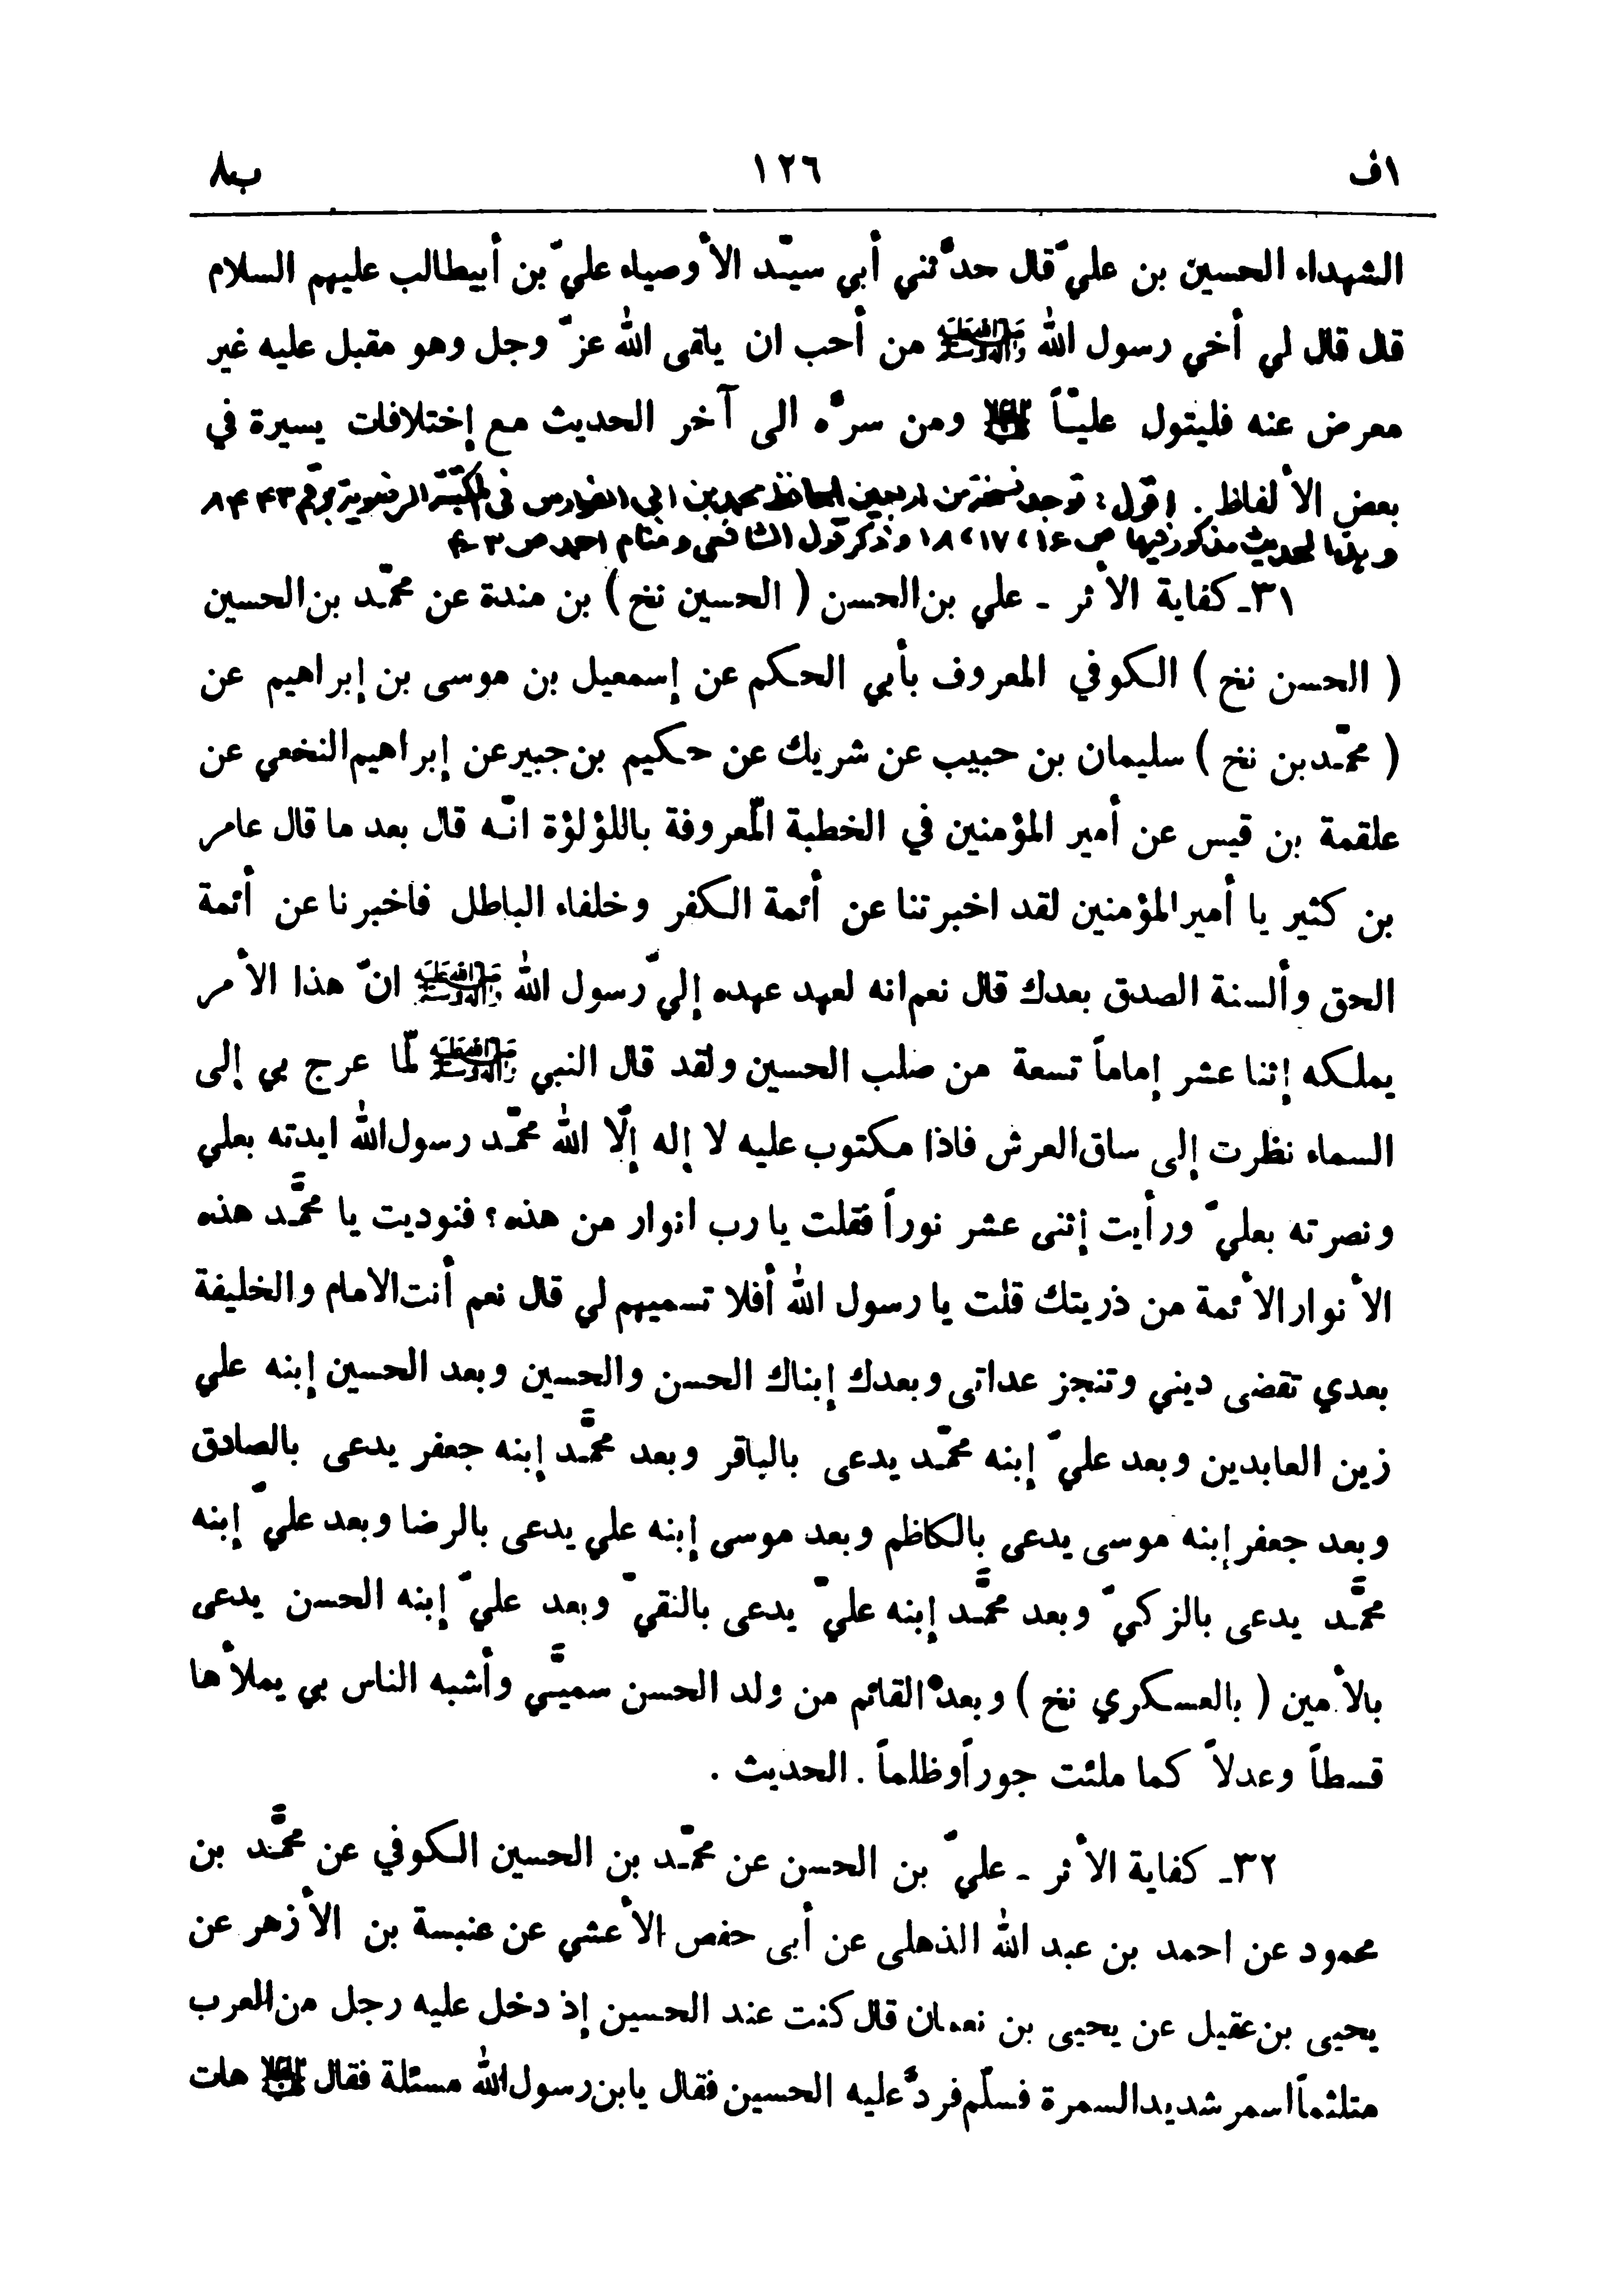 ف١ ١٢٦ ب٨
الشهداء الحسين بن عليّ قال حدّثني أبي سيّد الأوصياء عليّ بن أبيطالب عليهم السلام
قال قال لي أخي رسول الله ﷺ من أحب ان يلقى الله عزّ وجل وهو مقبل عليه غير
معرض عنه فليتول عليّاً ومن سرّه الى آخر الحديث مع إختلافات يسيرة في
بعض الألفاظ . اقول : توجد نسخة من اربعين الحافظ محمد بن ابي الفوارس في المكتبة الرضوية برقم ٨٤٤٣
وهذا الحديث مذكور فيها ص ١٦ ، ١٧ ، ١٨ وذكر قول الشافعي ومنام احمد ص ٣ـ٤
٣١ـ كفاية الأثر ـ علي بن الحسن ( الحسين نخ ) بن مندة عن محمّد بن الحسين
( الحسن نخ ) الكوفي المعروف بأبي الحكم عن إسمعيل بن موسى بن إبراهيم عن
( محمّد بن نخ ) سليمان بن حبيب عن شريك عن حكيم بن جبير عن إبراهيم النخعي عن
علقمة بن قيس عن أمير المؤمنين في الخطبة المعروفة باللؤلؤة انّه قال بعد ما قال عامر
بن كثير يا أمير المؤمنين لقد اخبرتنا عن أئمة الكفر وخلفاء الباطل فاخبرنا عن أئمة
الحق وألسنة الصدق بعدك قال نعم انه لعهد عهده إليّ رسول الله ﷺ انّ هذا الأمر
يملكه إثنا عشر إماماً تسعة من صلب الحسين ولقد قال النبي ﷺ لمّا عرج بي إلى
السماء نظرت إلى ساق العرش فاذا مكتوب عليه لا إله إلّا الله محمّد رسول الله ايدته بعلي
ونصرته بعليّ ورأيت إثنى عشر نوراً فقلت يا رب انوار من هذه ؟ فنوديت يا محمّد هذه
الأنوار الأئمة من ذريتك قلت يا رسول الله أفلا تسميهم لي قال نعم أنت الامام والخليفة
بعدي تقضى ديني وتنجز عداتى وبعدك إبناك الحسن والحسين وبعد الحسين إبنه علي
زين العابدين وبعد عليّ إبنه محمّد يدعى بالباقر وبعد محمّد إبنه جعفر يدعى بالصادق
وبعد جعفر إبنه موسى يدعى بالكاظم وبعد موسى إبنه علي يدعى بالرضا وبعد عليّ إبنه
محمّد يدعى بالزكيّ وبعد محمّد إبنه عليّ يدعى بالنقيّ وبعد عليّ إبنه الحسن يدعى
بالأمين ( بالعسكري نخ ) وبعده القائم من ولد الحسن سميّي وأشبه الناس بي يملأها
قسطاً وعدلاً كما ملئت جوراً وظلماً . الحديث .
٣٢ـ كفاية الأثر ـ عليّ بن الحسن عن محمّد بن الحسين الكوفي عن محمّد بن
محمود عن احمد بن عبد الله الذهلى عن أبى حفص الأعشي عن عنبسة بن الأزهر عن
يحيى بن عقيل عن يحيى بن نعمان قال كنت عند الحسين إذ دخل عليه رجل من العرب
متلثماً اسمر شديد السمرة فسلّم فردّ عليه الحسين فقال يابن رسول الله مسئلة فقال هات